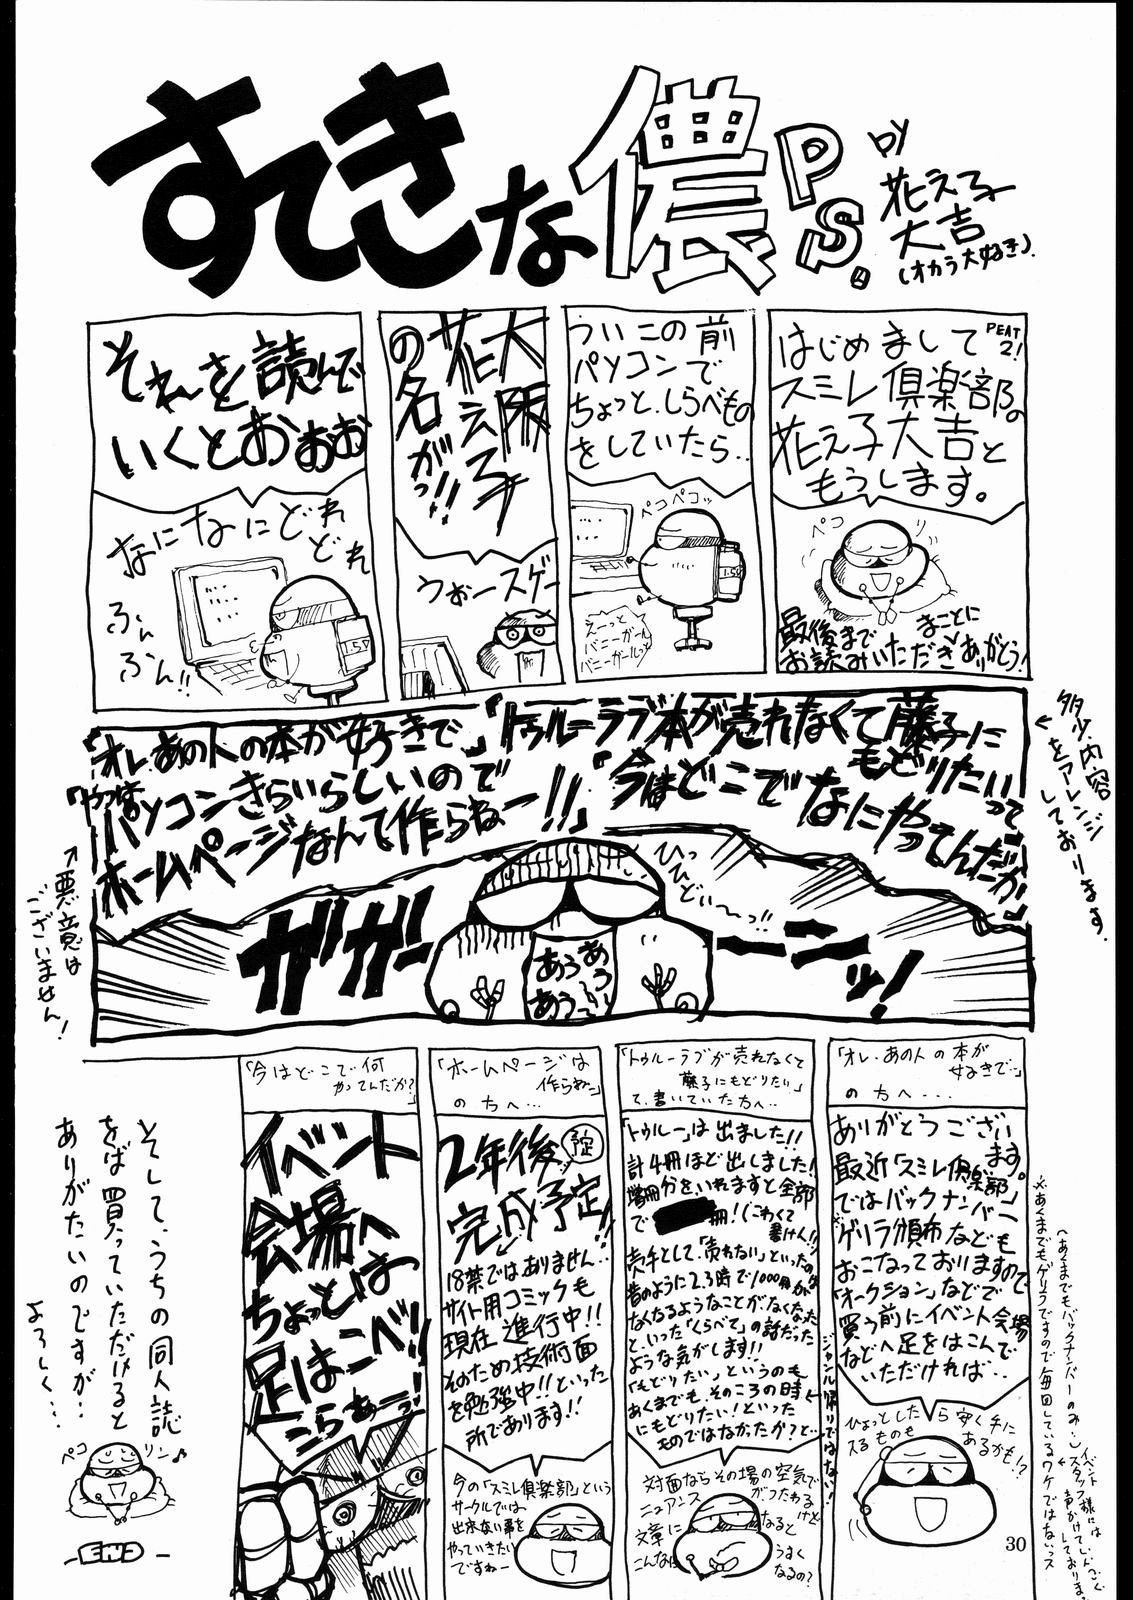 すてきな儂
P.S.
BY
花え子
大吉
(オカラ大好き).
PEAT
2!
はじめまして
スミレ倶楽部の
花え子大吉と
もうします。
ペコ
リ
最後まで
お読みいただき
まことに
ありがとう!
ういこの前
パソコンで
ちょっと、しらべもの
をしていたら‥
ペコペコッ
1.5V
えーっと
バニーガールっと
バニーガールっと
大阪
花え子
の名が
っ!!
うぉースゲー
それーを読んで
いくとおぉお
なになにどれ
どれ
ふん
ふん!!
1.5V
「トゥルーラブ本が売れなくて藤子に
もどりたいって
「今はどこでなにやってんだか」
「オレ、あの人の本が好きで」
「やつは
パソコンきらいらしいので
ホームページなんて作らねー!!」
ひっ
ひどい〜っ!!
ガガーーーンッ!
あうあう
あうあう〜
←多少、内容
をアレンジ
しております。
↑悪意は
ございません!
「オレ、あの人の本が
好きで…」
の方へ・・・
ありがとうござい
ます。
最近「スミレ倶楽部」
ではバックナンバー
※ゲリラ頒布なども
おこなっておりますので
「オークション」などで
買う前にイベント会場
などへ足をはこんで
いただければ‥
ひょっとしたら安く手に
入るものも
あるかも!?
※あくまでもゲリラですので毎回しているワケではないっス
(あくまでもバックナンバーのみ…
イベント
スタッフ様には
声がけていんごく
しております。
「トゥルーラブが売れなくて
藤子にもどりたい」
て、書いていた方へ…
「トゥルー」は出ました!!
計4冊ほど出しました!
増冊分をいれますと全部
で
冊!(こわくて
書けん!!)
売手として、「売れない」といったのは
昔のように2.3時で1000冊が
なくなるようなことがなくなった
といった「くらべて」の話だった
ような気がします!!
「もどりたい」というのも
あくまでも、そのころの時←
にもどりたい!といった
ものではなかったか?と…
ジャンル帰りではない!
対面ならその場の空気で
ニュアンス
がつたわる
けど
文章に
なると
こんな
うまく
なるの?
「ホームページは
作らねー」
の方へ…
2年後
予定
完成予定!!
18禁ではありません‥
サイト用コミックも
現在進行中!!
そのため技術面
を勉強中!!といった
所であります!!
今の「スミレ倶楽部」という
サークルでは
出来ない事を
やっていきたい
ですねー
「今はどこで何
やってんだか?」
イベント
会場へ
ちょっとは
足はこべ!!
こらぁーっ!
そして、うちの同人誌
をば買っていただけると
ありがたいのですが…
よろしく…
ペコ
リン♪
-END-
30